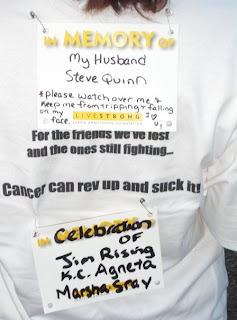 IN MEMORY OF
My Husband
Steve Quinn
*please watch over me &
keep me from tripping & falling
on my face. LIVESTRONG I ♡
LANCE ARMSTRONG FOUNDATION u,
For the friends we've lost
and the ones still fighting...
Cancer can rev up and suck it!
IN Celebration
OF
Jim Rising
K.C. Agneta
Marsha Gray